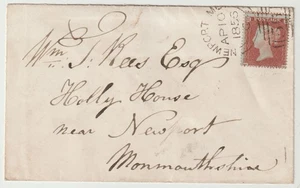 Wm S. Rees Esq
Holly House
near Newport
Monmouthshire
NEWPORT M
AP 10
1855